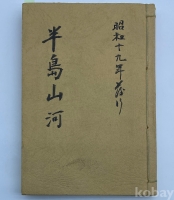 昭和十九年発行
半島山河
kobay